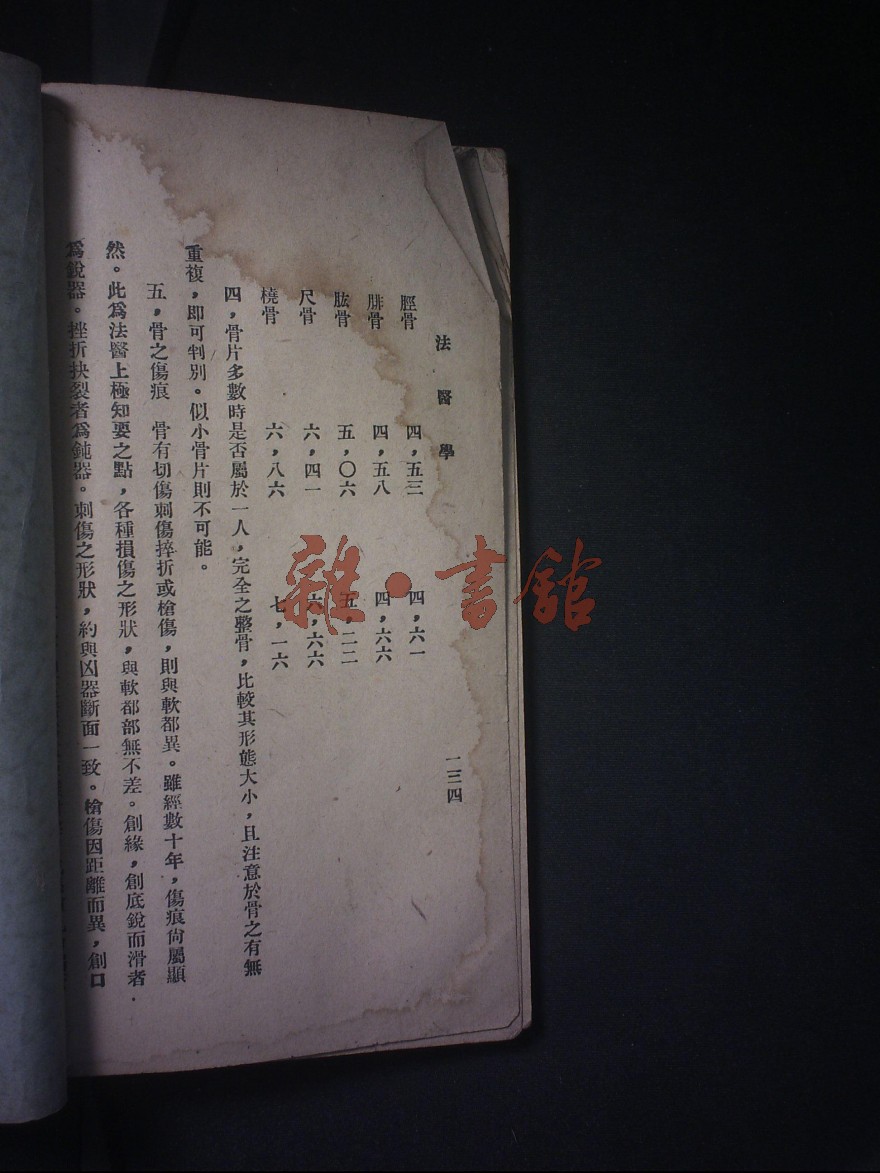 法醫學
一三四
脛骨 四,五三 四,六一
腓骨 四,五八 四,六六
肱骨 五,〇六 五,二二
尺骨 六,四一 六,六六
橈骨 六,八六 七,一六
四,骨片多數時是否屬於一人,完全之整骨,比較其形態大小,且注意於骨之有無
重複,即可判別。似小骨片則不可能。
五,骨之傷痕 骨有切傷刺傷挫折或槍傷,則與軟部異。雖經數十年,傷痕尙屬顯
然。此爲法醫上極知要之點,各種損傷之形狀,與軟部部無不差。創緣,創底銳而滑者.
爲銳器。挫折抉裂者爲鈍器。刺傷之形狀,約與凶器斷面一致。槍傷因距離而異,創口
雜·書館